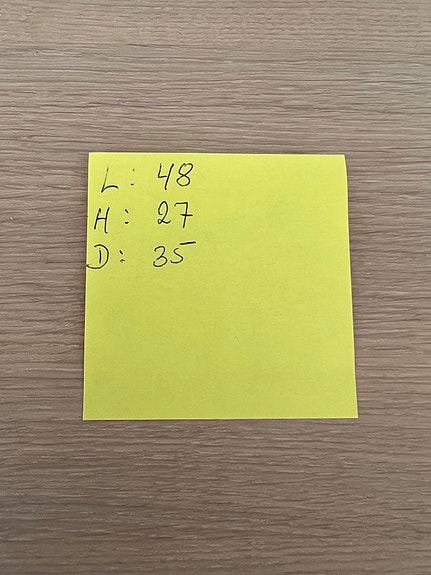 L: 48
H: 27
D: 35